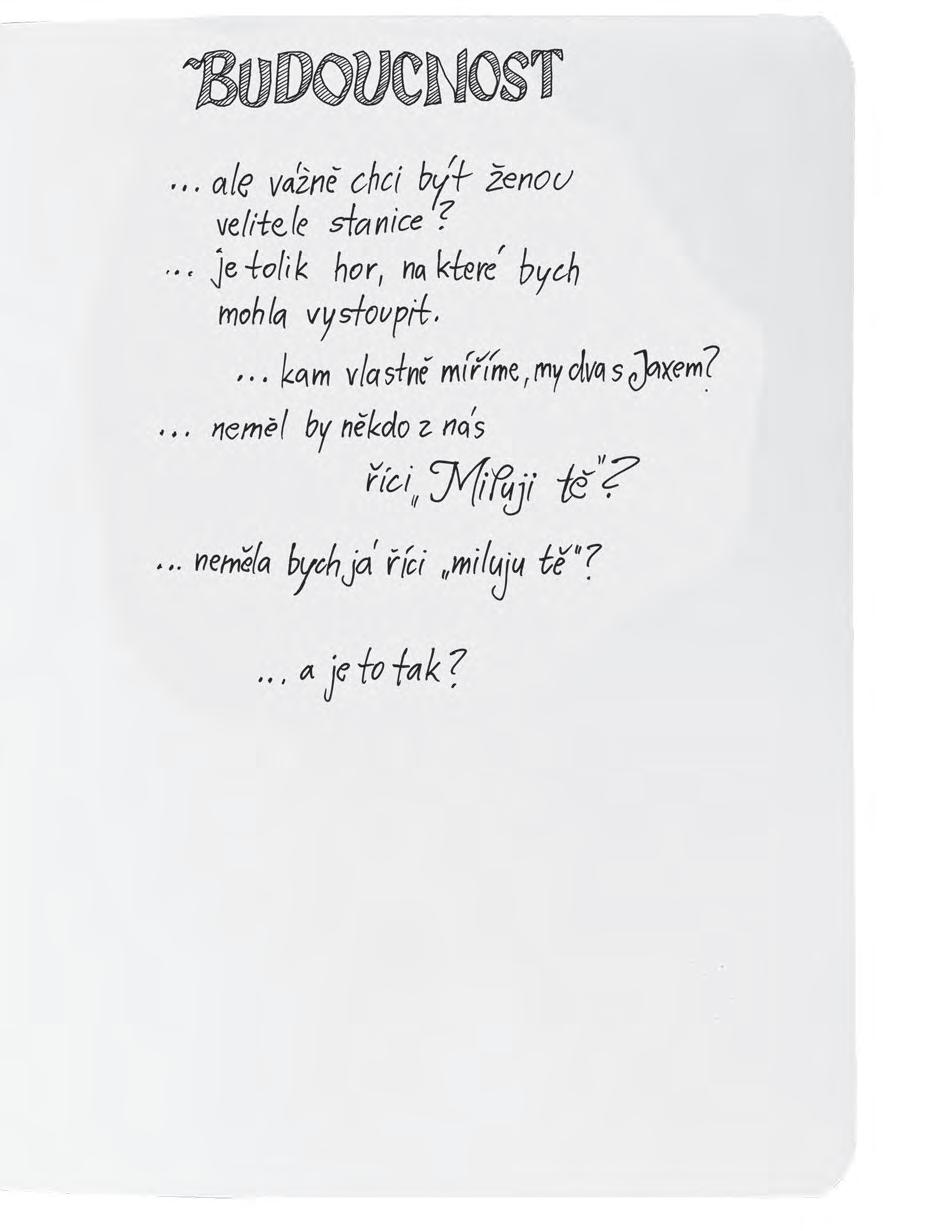 ~BUDOUCNOST
... ale vážně chci být ženou
velitele stanice?
... je tolik hor, na které bych
mohla vystoupit.
... kam vlastně míříme, my dva s Jaxem?
... neměl by někdo z nás
říci „Miluji tě"?
... neměla bych já říci „miluju tě"?
... a je to tak?